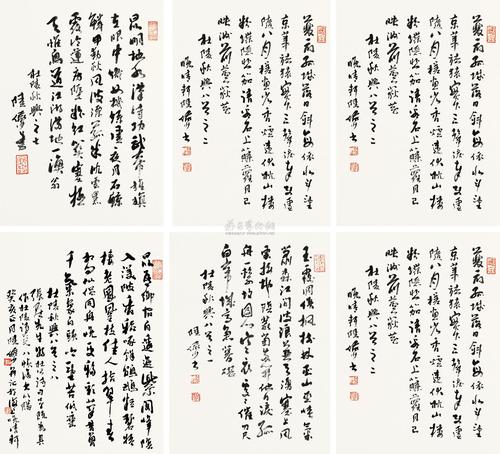 夔府孤城落日斜每依北斗望
京華聽猿實下三聲淚奉使虛
隨八月槎畫省香爐違伏枕山樓
粉堞隱悲笳請看石上藤蘿月已
映洲前蘆荻花
杜陵秋興八首之二
晚晴軒陸儼少
夔府孤城落日斜每依北斗望
京華聽猿實下三聲淚奉使虛
隨八月槎畫省香爐違伏枕山樓
粉堞隱悲笳請看石上藤蘿月已
映洲前蘆荻花
杜陵秋興八首之二
晚晴軒陸儼少
昆明池水漢時功武帝旌旗
在眼中織女機絲虛夜月石鯨
鱗甲動秋風波漂菰米沉雲黑
露冷蓮房墜粉紅關塞極
天惟鳥道江湖滿地一漁翁
杜陵秋興之七
陸儼少書
夔府孤城落日斜每依北斗望
京華聽猿實下三聲淚奉使虛
隨八月槎畫省香爐違伏枕山樓
粉堞隱悲笳請看石上藤蘿月已
映洲前蘆荻花
杜陵秋興八首之二
晚晴軒陸儼少
玉露凋傷楓樹林巫山巫峽氣
蕭森江間波浪兼天湧塞上風
雲接地陰叢菊兩開他日淚孤
舟一繫故園心寒衣處處催刀尺
白帝城高急暮砧
杜陵秋興八首之一
陸儼少
昆吾御宿自逶迤紫閣峰陰
入渼陂香稻啄餘鸚鵡粒碧梧
棲老鳳凰枝佳人拾翠春
相問仙侶同舟晚更移彩筆昔曾
干氣象白頭吟望苦低垂
杜陵秋興八首之八